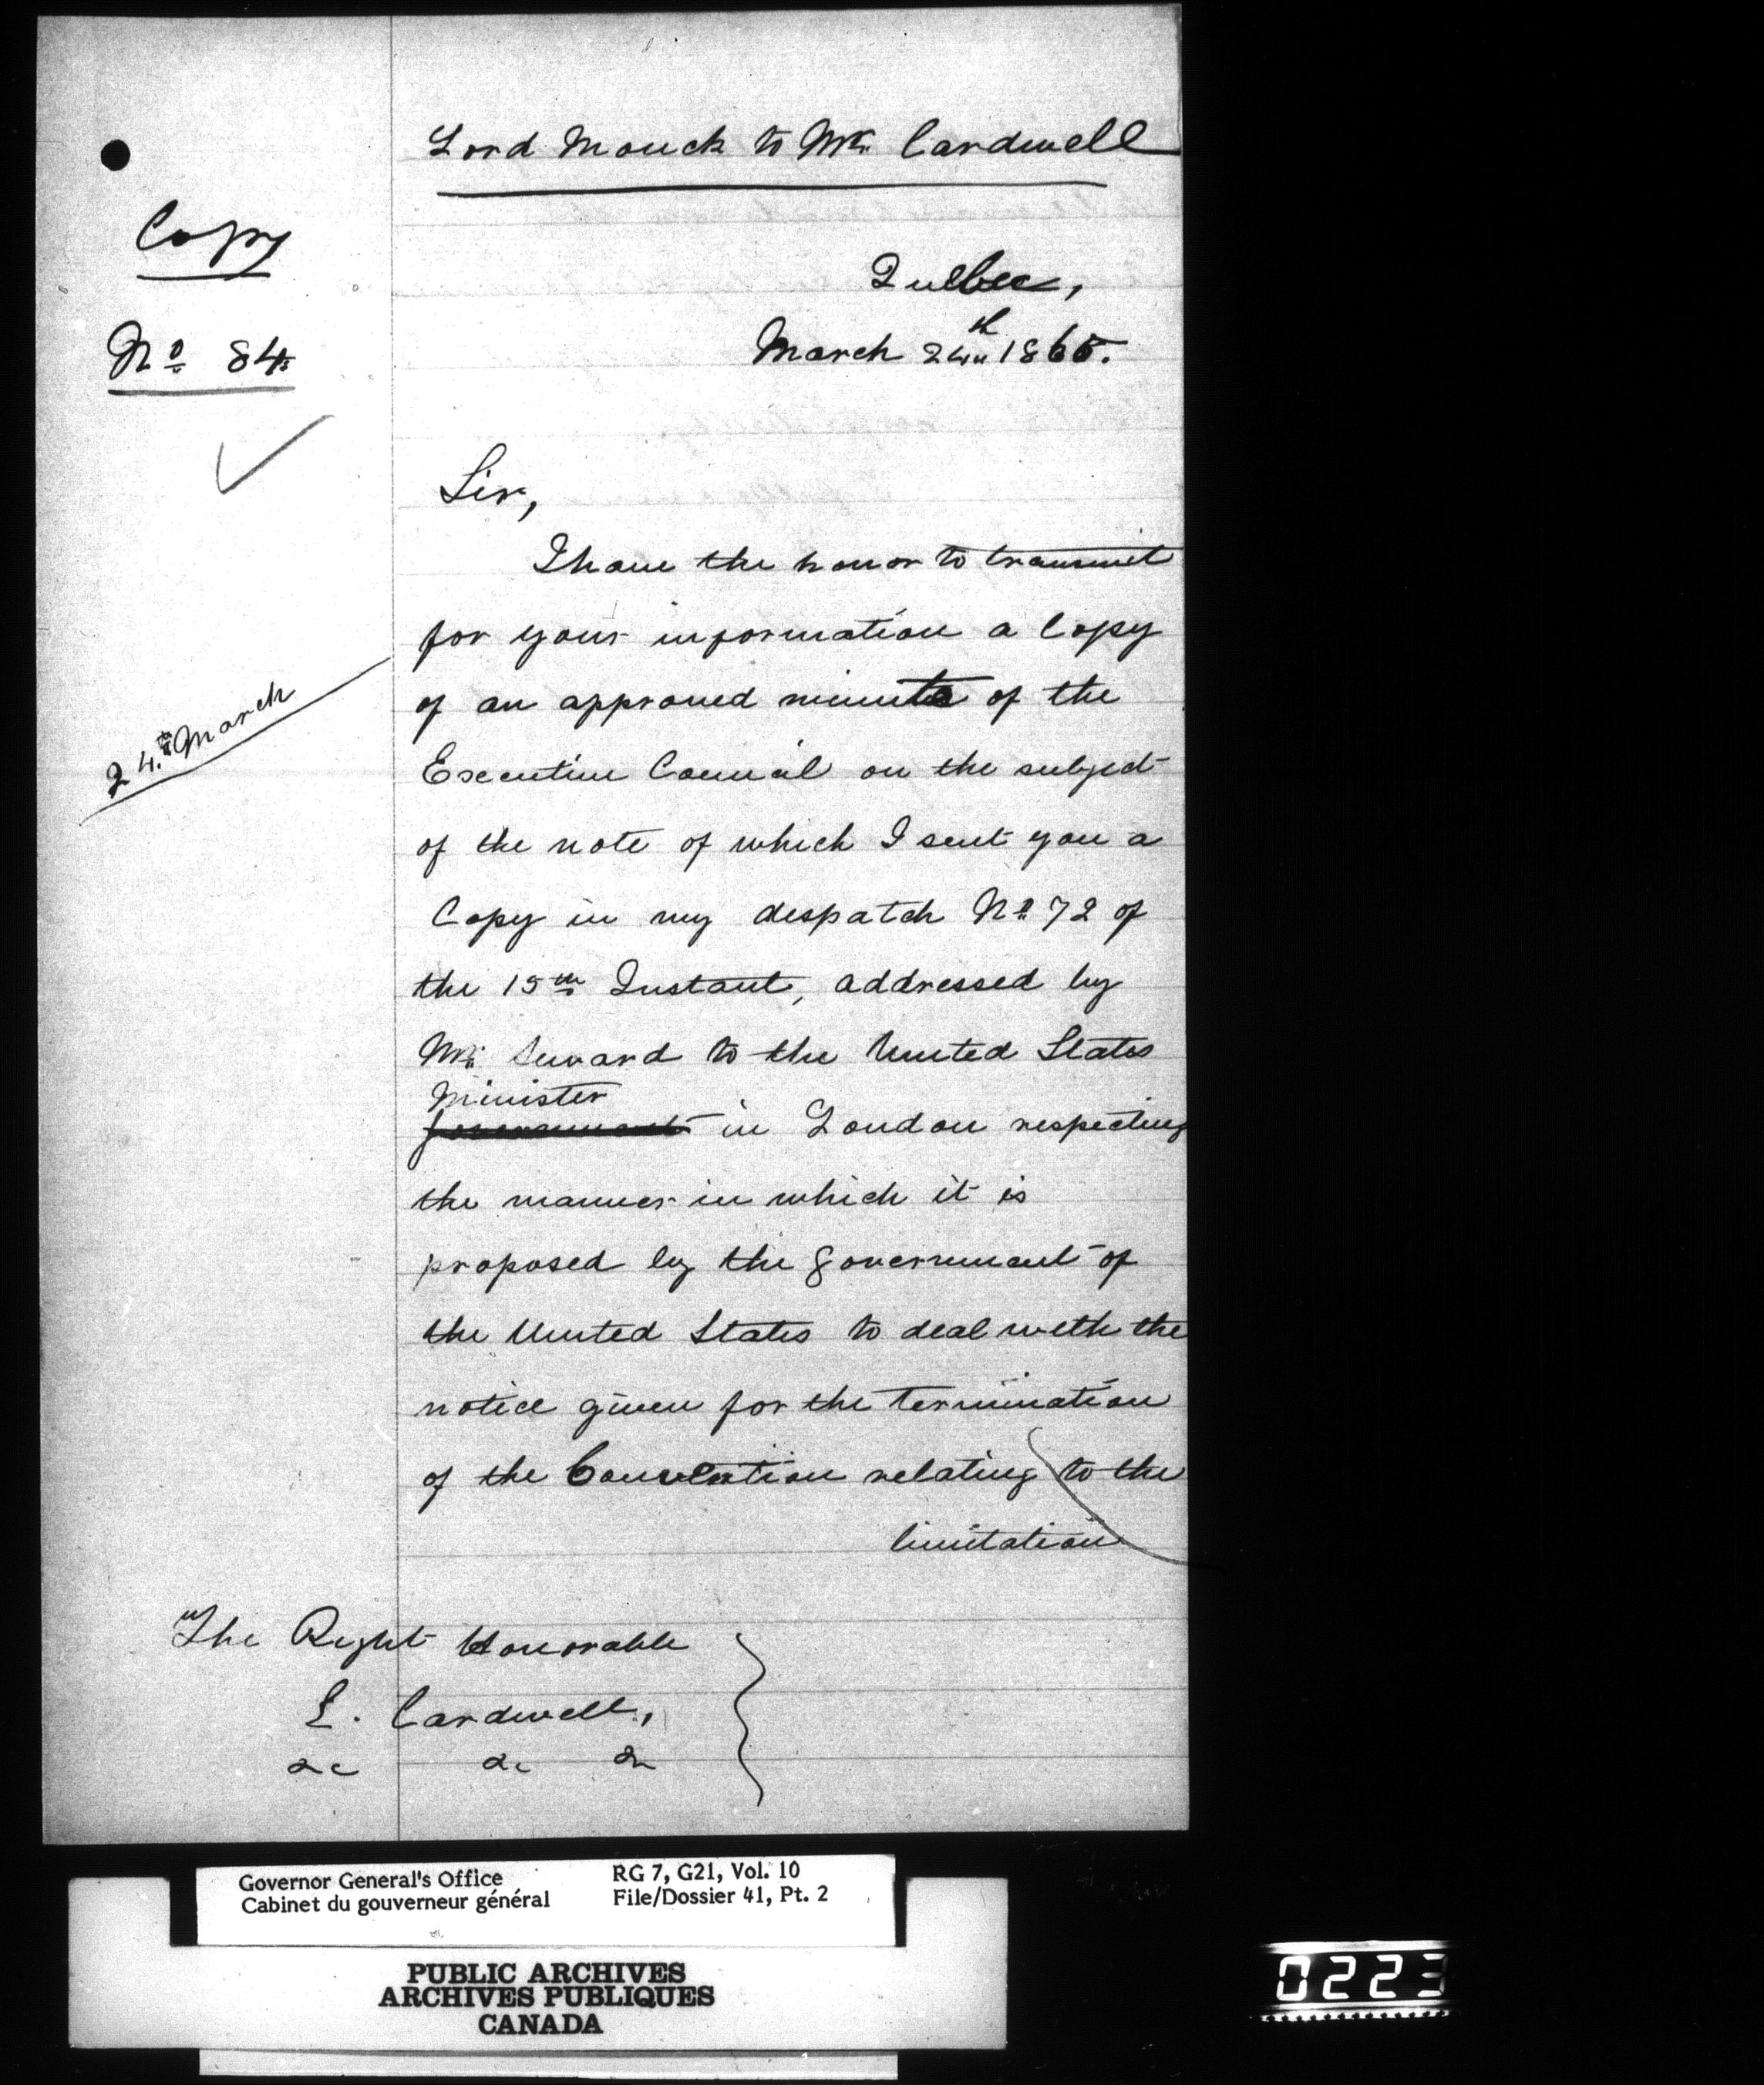 Lord Monck to Mr. Cardwell
Copy
No 84
Quebec,
March 24th 1865.
Sir,
I have the honor to transmit
for your information a Copy
of an approved minute of the
24th March
Executive Council on the subject
of the note of which I sent you a
Copy in my despatch No 72 of
the 15th Instant, addressed by
Mr. Seward to the United States
Minister
Government in London respecting
the manner in which it is
proposed by the Government of
the United States to deal with the
notice given for the termination
of the Convention relating to the
limitation
The Right Honorable
E. Cardwell,
&c &c &c
Governor General's Office
Cabinet du gouverneur général
RG 7, G21, Vol. 10
File/Dossier 41, Pt. 2
PUBLIC ARCHIVES
ARCHIVES PUBLIQUES
CANADA
0223